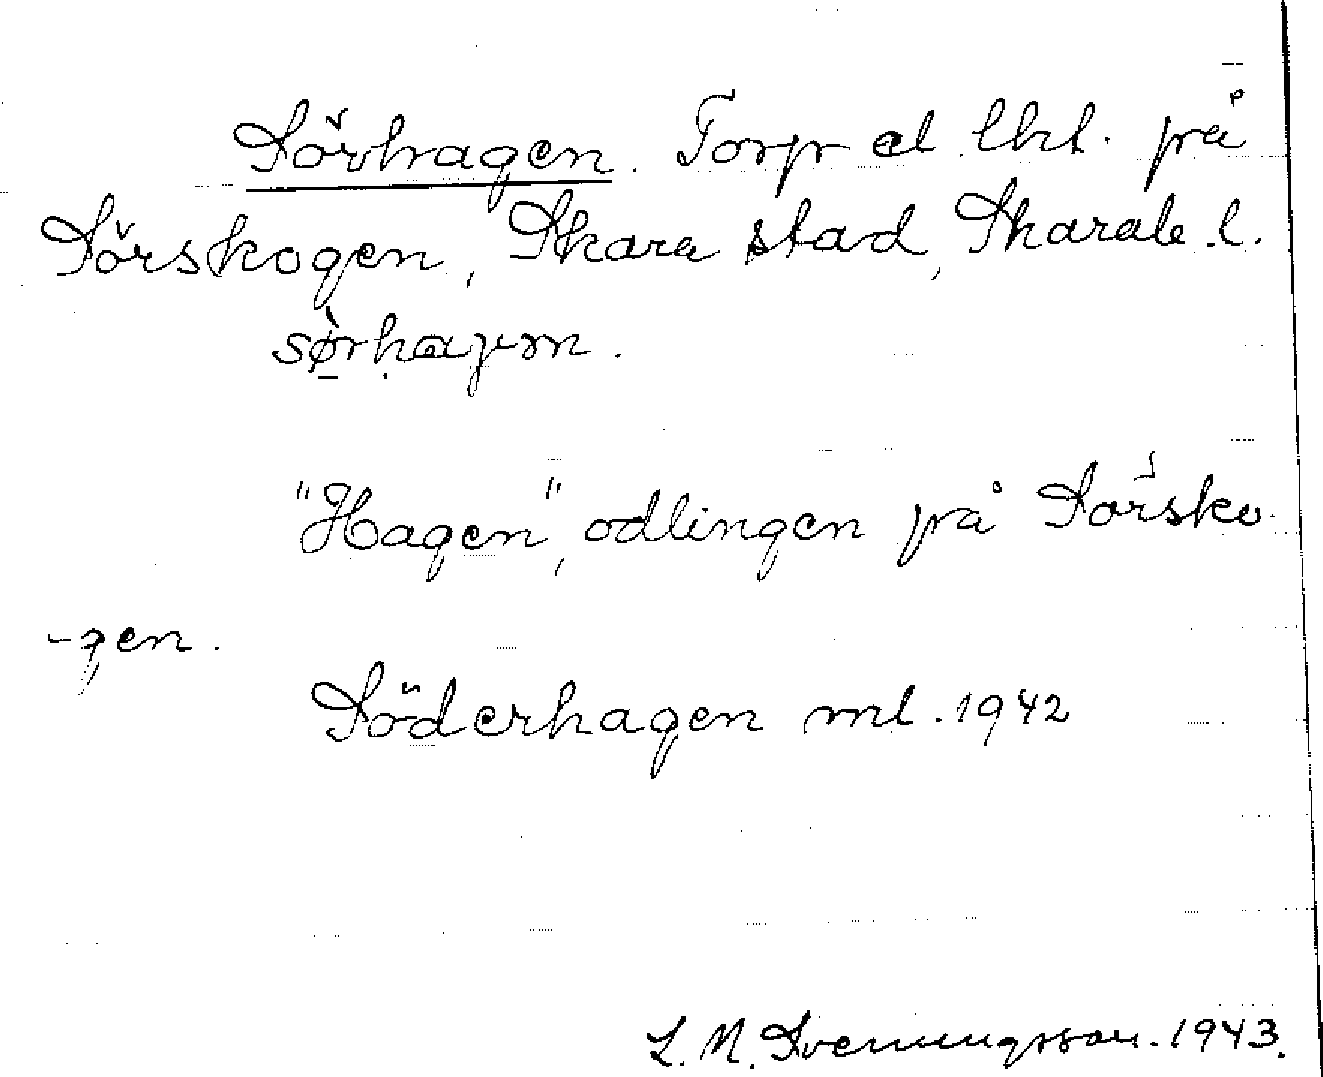 Sörhagen. Torp el lht. på
Sörskogen, Skara stad, Skarab. l.
sø̀rhaɡən.
"Hagen", odlingen på Sörsko
-gen.
Söderhagen ml. 1942
L. M. Svenungsson. 1943.